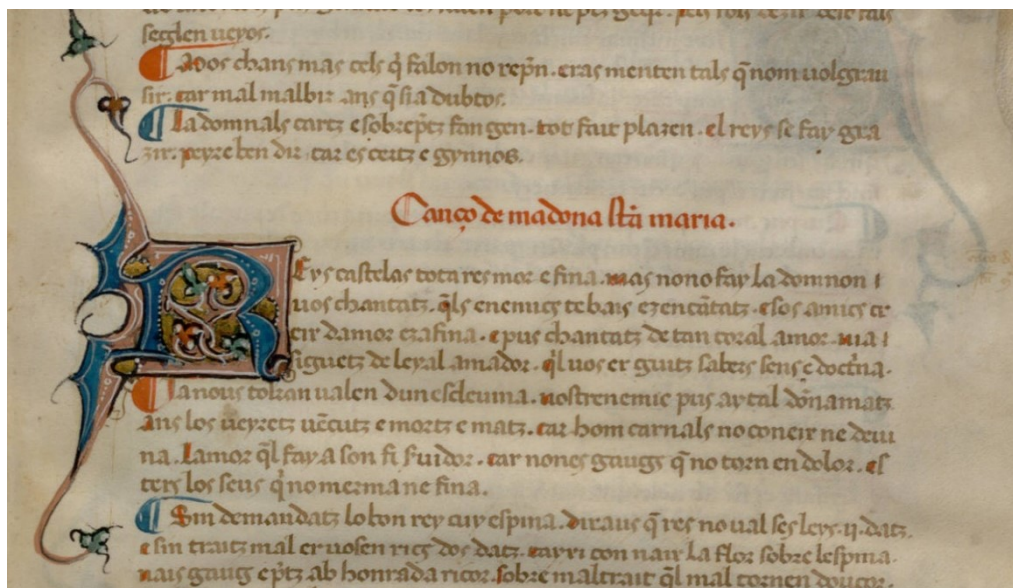 seglen ueyos.
A vos chans mas cels q̃ falon no repñ. eras menten tals q̃ nom uolgrau
sir. car mal malbir. ans q̃ sia dubtos.
La domnals cartz e sobreptz fan gen. tot fait plazen. el reys se fay gra
zir. peyre ben dir. car es ceitz e gynnos.
Canço de madona sta maria.
Reys castelas tota res mor e fina. mas no no fay la domnon
uos chantatz. q̃ls enemics te bais ez encũtatz. e sos amics er
eir damor ez afina. e pus chantatz de tan coral amor.
siguetz de leyal amador. q̃l uos er guitz sabers sens e doctña.
Ja nous tolran ualen dun escleuina. uostrenemic pus aytal dõnamatz
ans los ueyretz uẽcutz e mortz e matz. car hom carnals no coneix ne deui
na. Lamor q̃l fay a son fi suidor. car nones gaugs q̃ no torn en dolor. es
ters los seus q̃ no merma ne fina.
Sin demandatz lo bon rey cuy espina. diraus q̃ res no ual ses leys .ii. datz.
e sin traitz mal er uosen rics dos datz. con naix la flor sobre lespina.
nais gaug eptz ab honrada ricor. sobre maltrait q̃l mal tornen douçor.